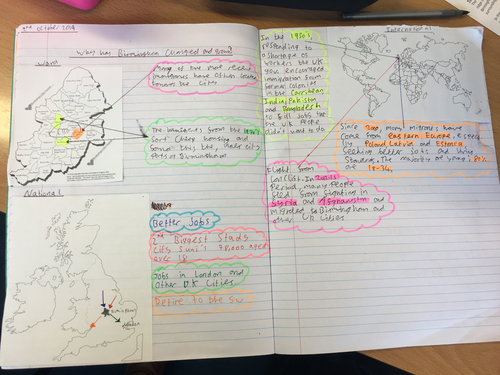 2nd october 2019
Why has Birmingham Changed and grown?
ward
Many of the more recent
have other
the cities
The immigrants from the 1950's
Sort Cheap housing and
found this the inner city
Parts of Birmingham
National
Birmingham
London
Better Jobs
2nd Biggest Stude
City Uni's
over 18
Jobs in London and
Other U.K Cities
Retire to the SW
International
In the 1950's,
responding to
a Shortage of
workers the UK
gov. encouraged
immigration from
former colonies in
the Caribbean,
India, Pakistan
and Bangladesh
to fill jobs
the UK People
didn't want to do.
Since 2000, many migrants have
Come from Eastern Europe, especi
ly Poland, Latvia and Estonia
Seeking better jobs and living
Standards. The majority are young, 80%
are 18-34.
Flight from
Conflict. In
Period, many people
fled from fighting in
Syria and Afghanistan and
migrated to Birmingham and
other UK Cities